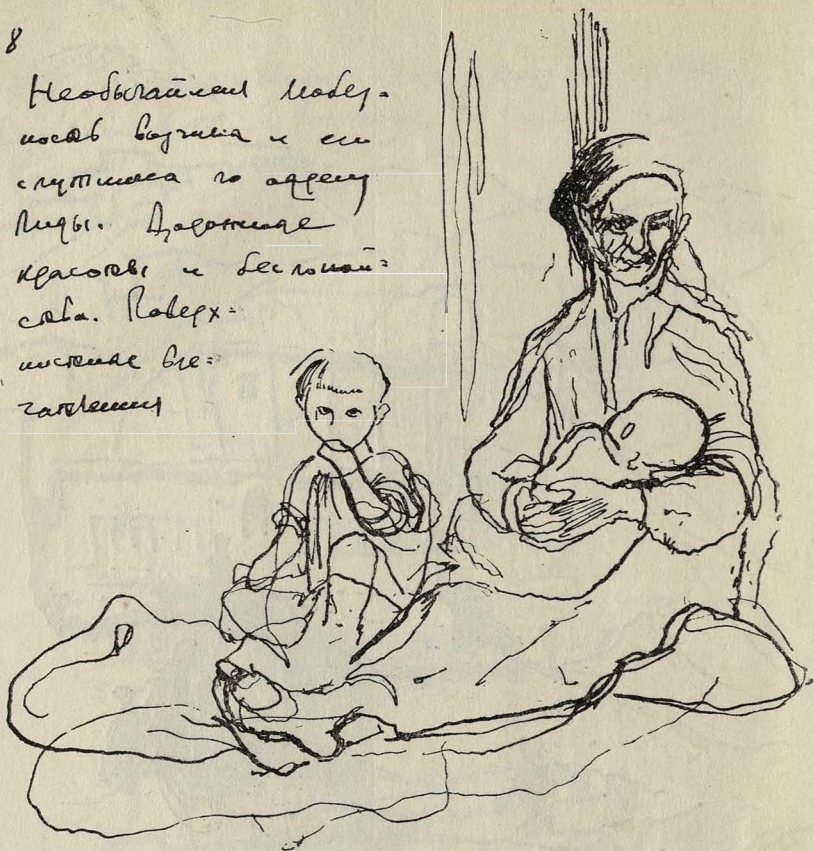 8
Необычайная любез-
ность возчика и его
спутника по адресу
Лиды. Дорожные
красоты и беспокой=
ства. Поверх=
ностные впе=
чатления